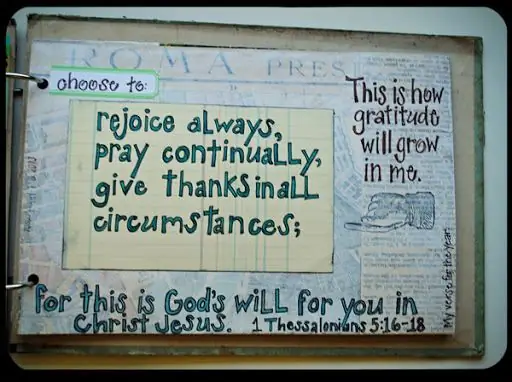 ROMA PRES
choose to:
rejoice always,
pray continually,
give thanks in all
circumstances;
This is how
gratitude
will grow
in me.
My verse for the year.
for this is God's will for you in
Christ Jesus. 1 Thessalonians 5:16-18